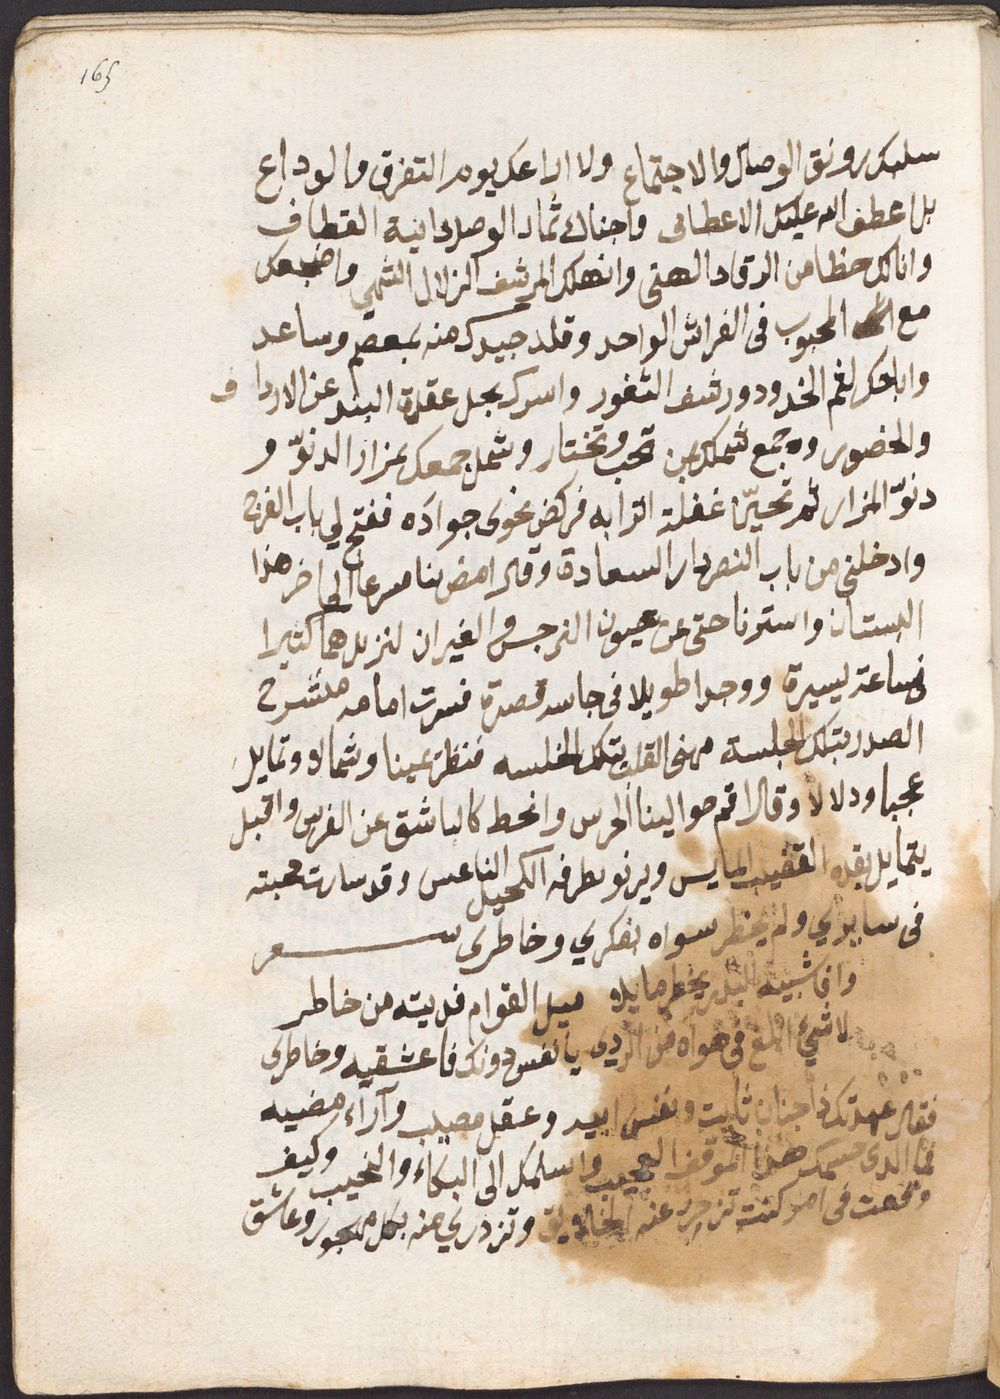 165
سلبك رونق الوصال والاجتماع ولا اراعك يوم التفرق والوداع
بل عطف الله عليك الاعطاف واجناك ثمار الوصل دانية القطاف
وانالك حظا من الرقاد الهنى وانهلك المرشف الزلال الشهي واضجعك
مع المحبوب فى الفراش الواحد وقلد جيدك منه بمعصم وساعد
واباحك لثم الخدود ورشف الثغور واسرك بحل عقدة البند عن الارداف
والخصور وجمع شملك بمن تحب وتختار وشمل جمعك بمزار الدنوّ و
دنوّ المزار ثم تحيّن غفلة اترابه فركض نحوى جواده ففتح لي باب الفرج
وادخلنى من باب النصر دار السعادة وقال امض بنا مسرعا الى اخر هذا
البستان واسترنا حتى عن عيون النرجس والغيران لنزيل هما كثيرا
فى ساعة يسيرة ووجدا طويلا فى جلسة قصيرة فسرت امامه منشرح
الصدر بتلك الجلسة مهنى القلب بتلك الخلسه فنظر يمينا وشمالا وتمايل
عجبا ودلالا وقال اقم حوالينا الحرس وانحط كالباشق عن الفرس واقبل
يتمايل بقده القضيب المايس ويرنو بطرفه الكحيل الناعس وقد سارت محبته
فى سايري ولم يخطر سواه بفكري وخاطرى شعر
وافا شبيه البدر يخطر مايلا ميل القوام فديته من خاطر
لا شيء ابلغ فى هواه من الردى يا نفس دونك فاعشقيه وخاطرى
فقال عهدتك ذا جنان ثابت ونفس ابيه وعقل مصيب وآراء مضيه
فما الذى جسمك هذا الموقف العجيب واسلمك الى البكاء والنحيب وكيف
وقعت فى امر كنت تزجر عنه الخلايق وتزدري منه بكل مهجور وعاشق